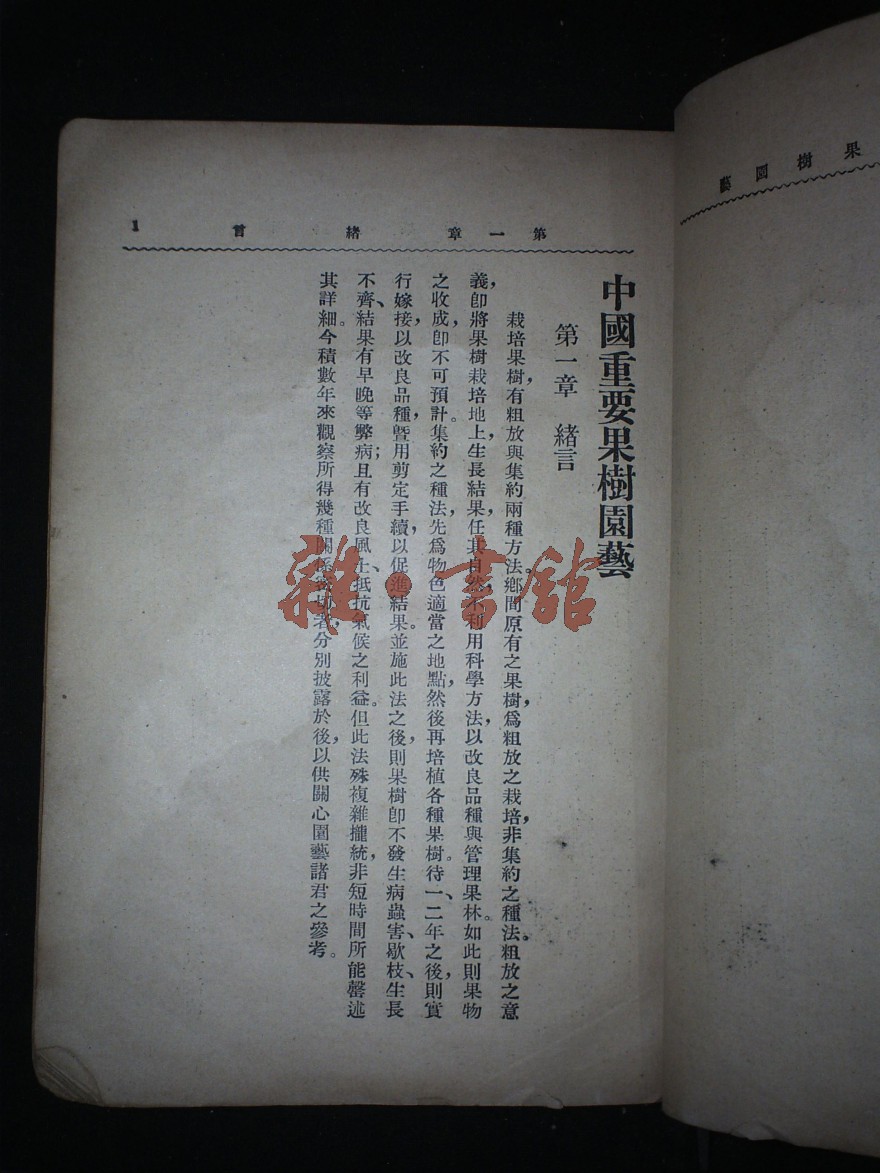 果樹園藝
第一章 緒言 1
中國重要果樹園藝
第一章 緒言
栽培果樹，有粗放與集約兩種方法。鄉間原有之果樹，爲粗放之栽培，非集約之種法。粗放之意
義，卽將果樹栽培地上，生長結果，任其自然，不利用科學方法，以改良品種與管理果林。如此則果物
之收成，卽不可預計。集約之種法，先爲物色適當之地點，然後再培植各種果樹。待一、二年之後，則實
行嫁接，以改良品種，曁用剪定手續，以促進結果。並施此法之後，則果樹卽不發生病蟲害、歇枝、生長
不齊、結果有早晚等弊病；且有改良風土、抵抗氣候之利益。但此法殊複雜攏統，非短時間所能罄述
其詳細。今積數年來觀察所得幾種關係密切者，分別披露於後，以供關心園藝諸君之參考。
雜·書館